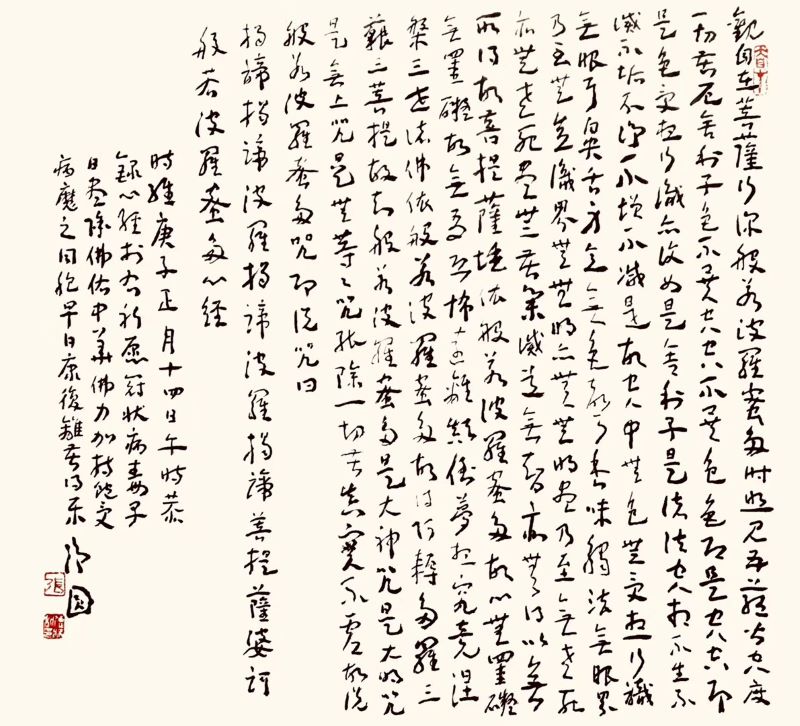 觀自在菩薩行深般若波羅蜜多時照見五蘊皆空度
一切苦厄舍利子色不異空空不異色色即是空空即
是色受想行識亦復如是舍利子是諸法空相不生不
滅不垢不淨不增不減是故空中無色無受想行識
無眼耳鼻舌身意無色聲香味觸法無眼界
乃至無意識界無無明亦無無明盡乃至無老死
亦無老死盡無苦集滅道無智亦無得以無
所得故菩提薩埵依般若波羅蜜多故心無罣礙
無罣礙故無有恐怖遠離顛倒夢想究竟涅
槃三世諸佛依般若波羅蜜多故得阿耨多羅三
藐三菩提故知般若波羅蜜多是大神咒是大明咒
是無上咒是無等等咒能除一切苦真實不虛故說
般若波羅蜜多咒即說咒曰
揭諦揭諦波羅揭諦波羅揭諦菩提薩婆訶
般若波羅蜜多心經
時維庚子正月十四日午時恭
錄心經於右祈愿冠狀病毒早
日盡除佛佑中華佛力加持飽受
病魔之同胞早日康復離苦得樂
張